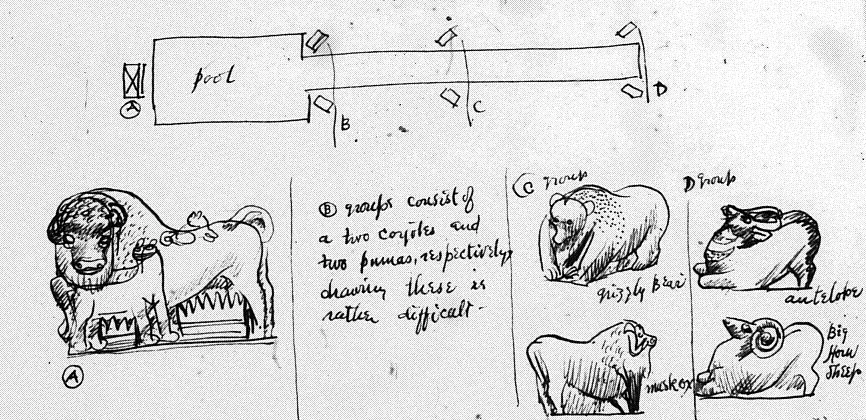 pool
A
B
C
D
Ⓑ groups consist of
a two coyotes and
two pumas, respectively,
drawing these is
rather difficult -
Ⓒ group
grizzly Bear
muskox
D group
antelope
Big
Horn
Sheep
Ⓐ